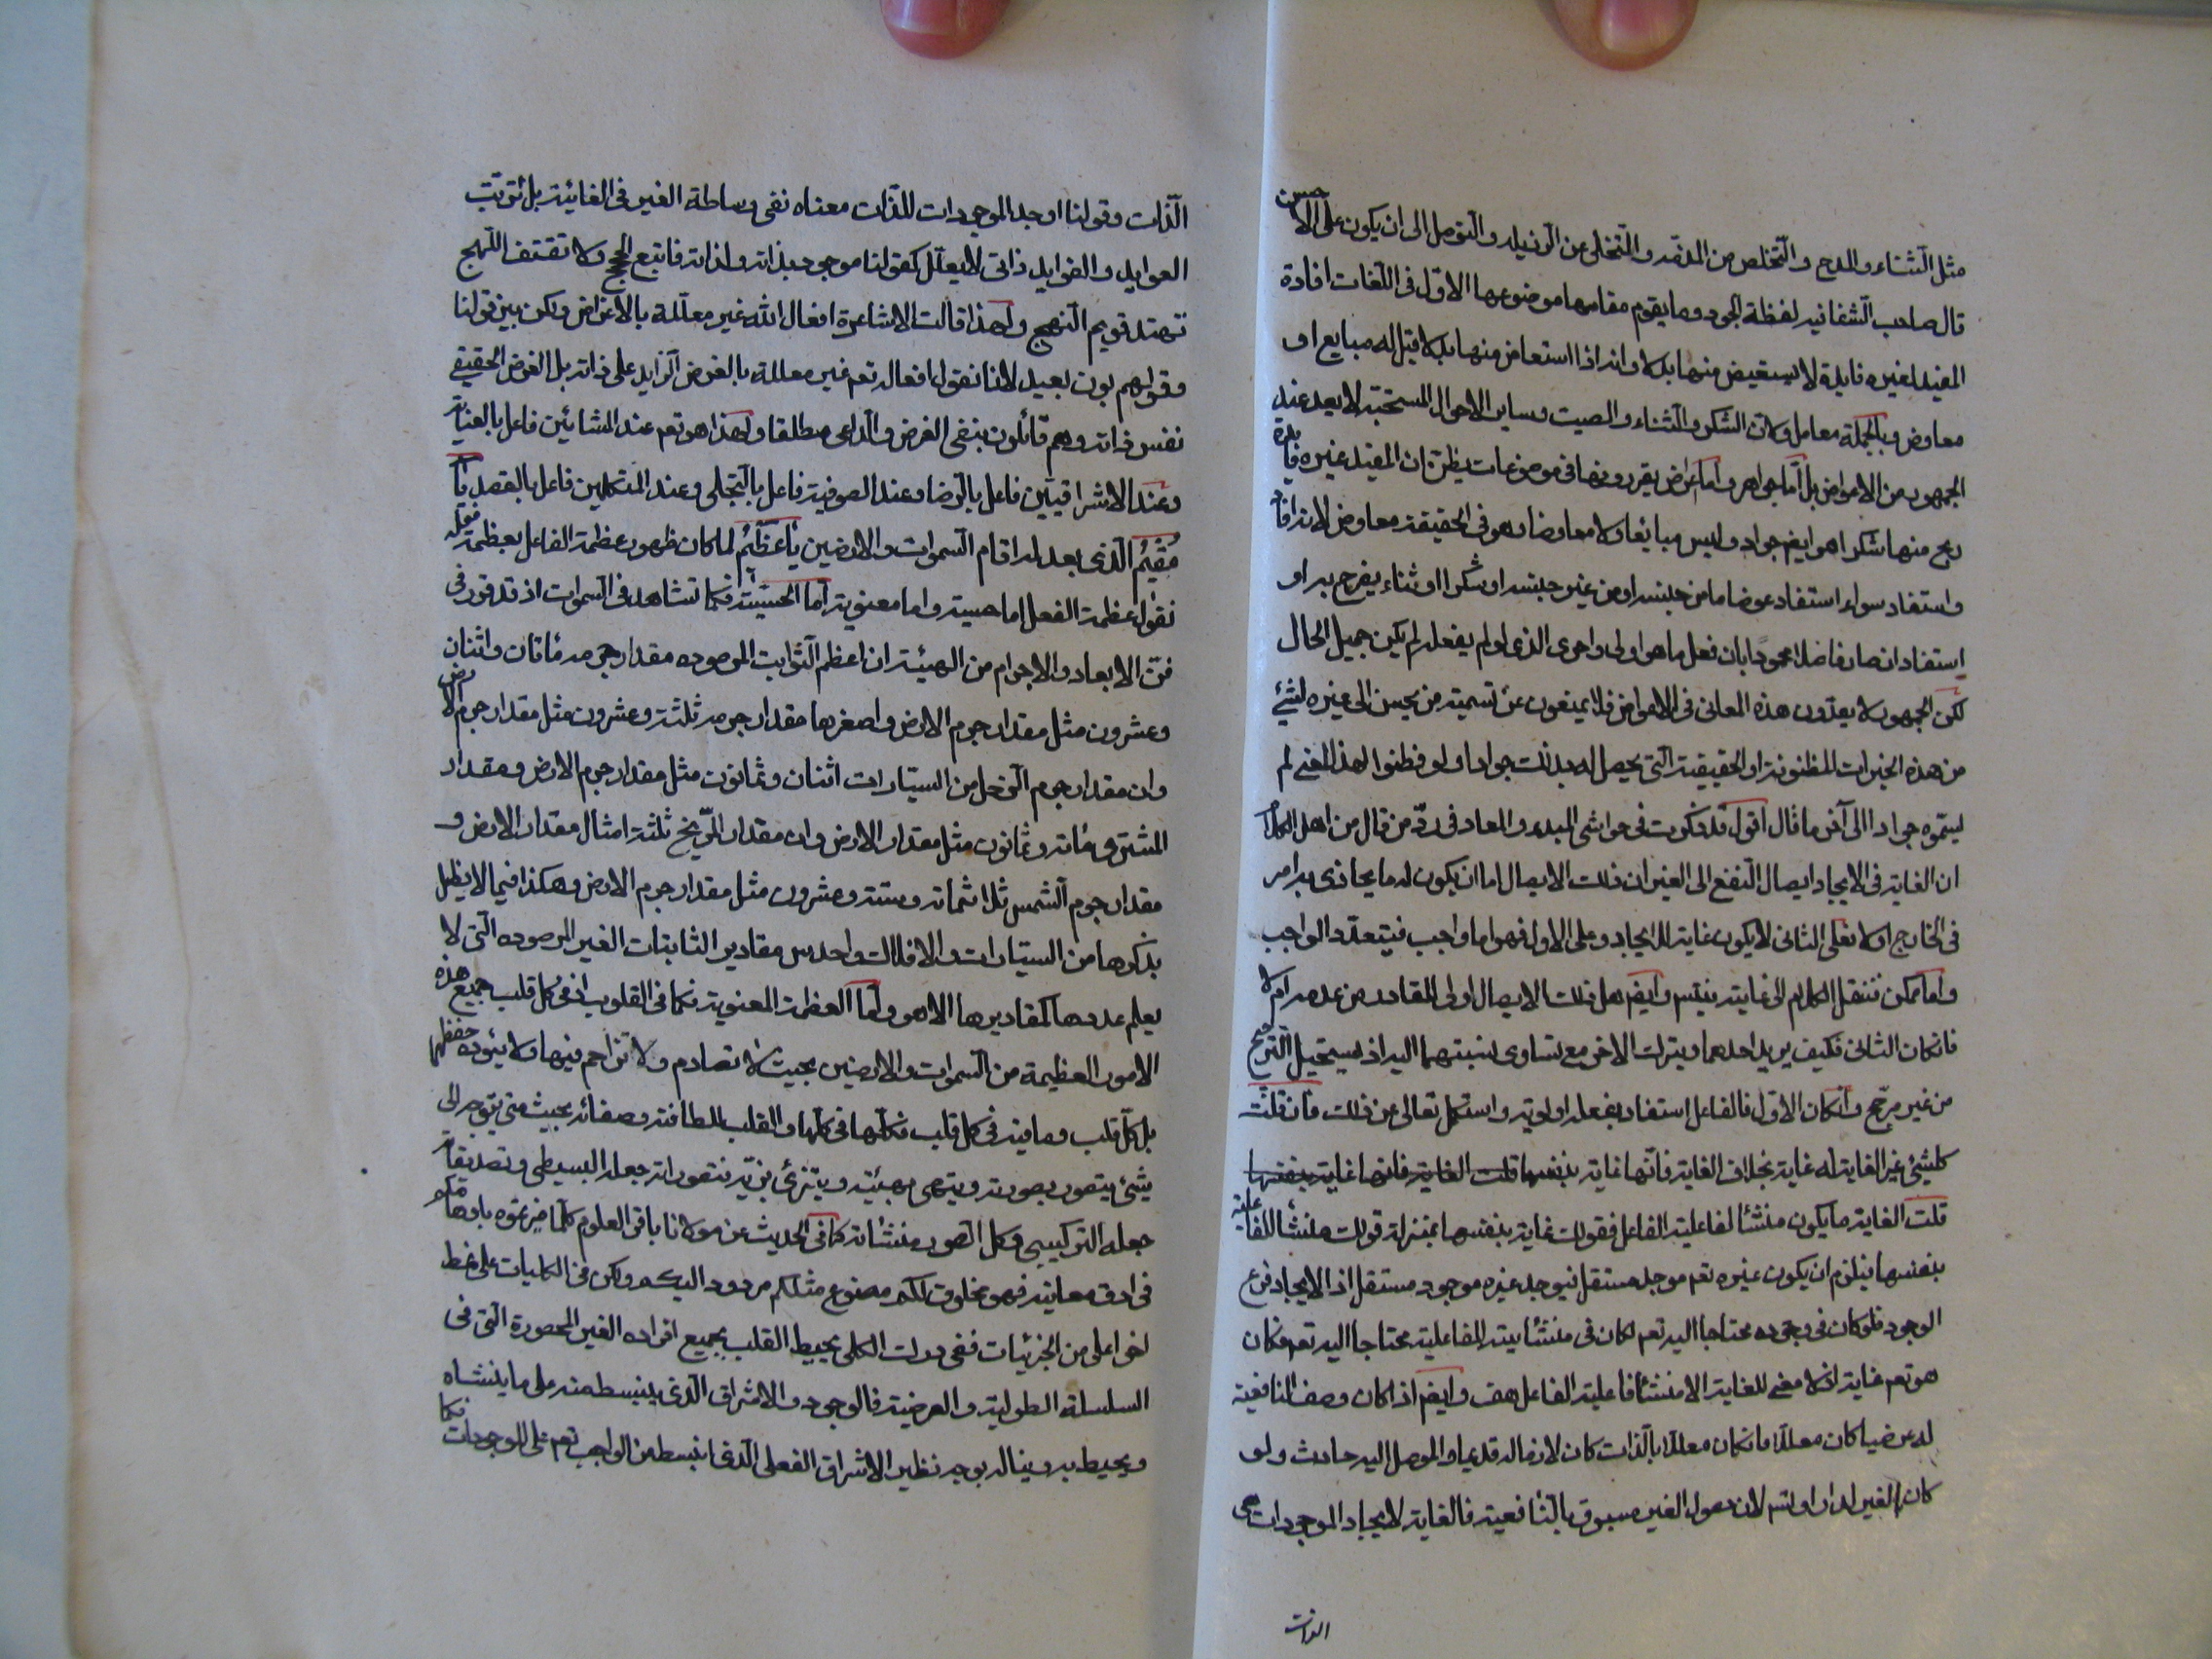 مثل الثناء والمدح والتخلص من المذمة والتخلى عن الرذيلة والتوصل الى ان يكون على الاحسن
قال صاحب الشفا فيه لفظة الجود وما يقوم مقامها موضوعها الاول فى اللغات افادة
المفيد لغيره فايدة لا يستعيض منها بدلا وانه اذا استعاض منها بدلا قيل له مبايع او
معاوض وبالجملة معامل ولان الشكر والثناء والصيت وساير الاحوال المستحبة لا يعد عند
الجمهور من الاعواض بل اما جواهر واما اعراض يقررونها فى موضوعات يظن ان المفيد غيره فايدة
ربح منها شكرا هو ايضا جواد وليس مبايعا ولا معاوضا وهو فى الحقيقة معاوض لانه افاد
واستفاد سواء استفاد عوضا ما من جنسه او من غير جنسه او شكرا او ثناء يفرح به او
استفاد ان صار فاضلا محمودا بان فعل ما هو اولى واحرى الذى لو لم يفعله لم يكن جميل الحال
لكن الجمهور لا يعدون هذه المعانى فى الاعواض فلا يمنعون عن تسمية من يحسن الى غيره لشئ
من هذه الخيرات المظنونة او الحقيقية التى يحصل له بذلك جوادا ولو فطنوا لهذا المعنى لم
يسموه جوادا الى آخر ما قال اقول قد ذكرت فى حواشى المبدء والمعاد فى رد من قال من اهل الكلام
ان الغاية فى الايجاد ايصال النفع الى الغير ان ذلك الايصال اما ان يكون له ما يحاذى به امر
فى الخارج او لا فعلى الثانى لا يكون غاية للايجاد وعلى الاول فهو اما واجب فيتعدد الواجب
واما ممكن فننقل الكلام الى غايته فيتس وايضا هل ذلك الايصال اولى للقادر من عدمه ام لا
فانكان الثانى فكيف يريد احدهما ويترك الاخر مع تساوى نسبتهما اليه اذ يستحيل الترجيح
من غير مرجح وانكان الاول فالفاعل استفاد بفعله اولوية واستكمل تعالى عن ذلك فان قلت
كلشئ غير الغاية له غاية بخلاف الغاية فانها غاية بنفسها قلت الغاية فانها غاية بنفسها
قلت الغاية ما يكون منشأ لفاعلية الفاعل فقولك غاية بنفسها بمنزلة قولك منشأ للفاعلية
بنفسها فيلزم ان يكون غيره تعم موجد مستقل فيوجد غيره موجود مستقل اذ الايجاد فرع
الوجود فلو كان فى وجوده محتاجا اليه تعم لكان فى منشأيته للفاعلية محتاجا اليه تعم فكان
هو تعم غاية اذ لا معنى للغاية الا منشأ فاعلية الفاعل هف وايضا اذا كان وصف النافعية
له عرضيا كان معللا فانكان معللا بالذات كان لازما له قديما والموصل اليه حادث ولو
كان الغير لدار او تس لان حصول الغير مسبوق بالنافعية فالغاية لايجاد الموجودات هى
الذات
الذات وقولنا اوجد الموجودات للذات معناه نفى وساطة الغير فى الغائية بل ترتب
العوايد والفوايد ذاتى لا يعلل كقولنا موجود بذاته ولذاته فاتبع الحجج ولا تقتف اللهج
تهتد قويم النهج ولهذا قالت الاشاعرة افعال الله غير معللة بالاغراض ولكن بين قولنا
وقولهم بون بعيد لانا نقول افعاله تعم غير معللة بالغرض الزايد على ذاته بل الغرض الحقيقى
نفس ذاته وهم قائلون بنفى الغرض والداعى مطلقا ولهذا هو تعم عند المشائين فاعل بالعناية
وعند الاشراقيين فاعل بالرضا وعند الصوفية فاعل بالتجلى وعند المتكلمين فاعل بالقصد يا
مقيم الذى بعدله اقام السموات والارضين يا عظيم لما كان ظهور عظمة الفاعل بعظمة فعله
نقول عظمة الفعل اما حسية واما معنوية اما الحسية فكما تشاهد فى السموات اذ قد قرر فى
فن الابعاد والاجرام من الهيئة ان اعظم الثوابت المرصوده مقدار جرمه مأتان واثنان
وعشرون مثل مقدار جرم الارض واصغرها مقدار جرمه ثلثة وعشرون مثل مقدار جرم الارض
وان مقدار جرم الزحل من السيارات اثنان وثمانون مثل مقدار جرم الارض ومقدار
المشترى مائة وثمانون مثل مقدار الارض وان مقدار المريخ ثلثة امثال مقدار الارض و
مقدار جرم الشمس ثلاثمائة وستة وعشرون مثل مقدار جرم الارض وهكذا فيما لا يطيل
بذكرها من السيارات والافلاك واحدس مقادير الثابتات الغير المرصوده التى لا
يعلم عددها كمقاديرها الا هو واما العظمة المعنوية فكما فى القلوب اذ فى كل قلب جميع هذه
الامور العظيمة من السموات والارضين بحيث لا تصادم ولا تزاحم فيها ولا يئوده حفظها
بل كل قلب وما فيه فى كل قلب فكلها فى كلها والقلب للطافته وصفائه بحيث متى يتوجه الى
شئ يتصور بصورته ويتهيى بهيئته ويتزئ بزيه فتصوراته جعله البسيطى وتصديقاته
جعله التركيبى وكل الصور منشئاته كما فى الحديث عن مولانا باقر العلوم كلما ميزتموه باوهامكم
فى ادق معانيه فهو مخلوق لكم مصنوع مثلكم مردود اليكم ولكن فى الكليات على نمط
اخر اعلى من الجزئيات ففى درك الكلى يحيط القلب بجميع افراده الغير المحصورة التى فى
السلسلة الطولية والعرضية فالوجود والاشراق الذى ينبسط منه على ما ينشاه
ويحيط به وينال بوجه نظير الاشراق الفعلى الذى انبسط من الواجب تعم على الموجودات فكما